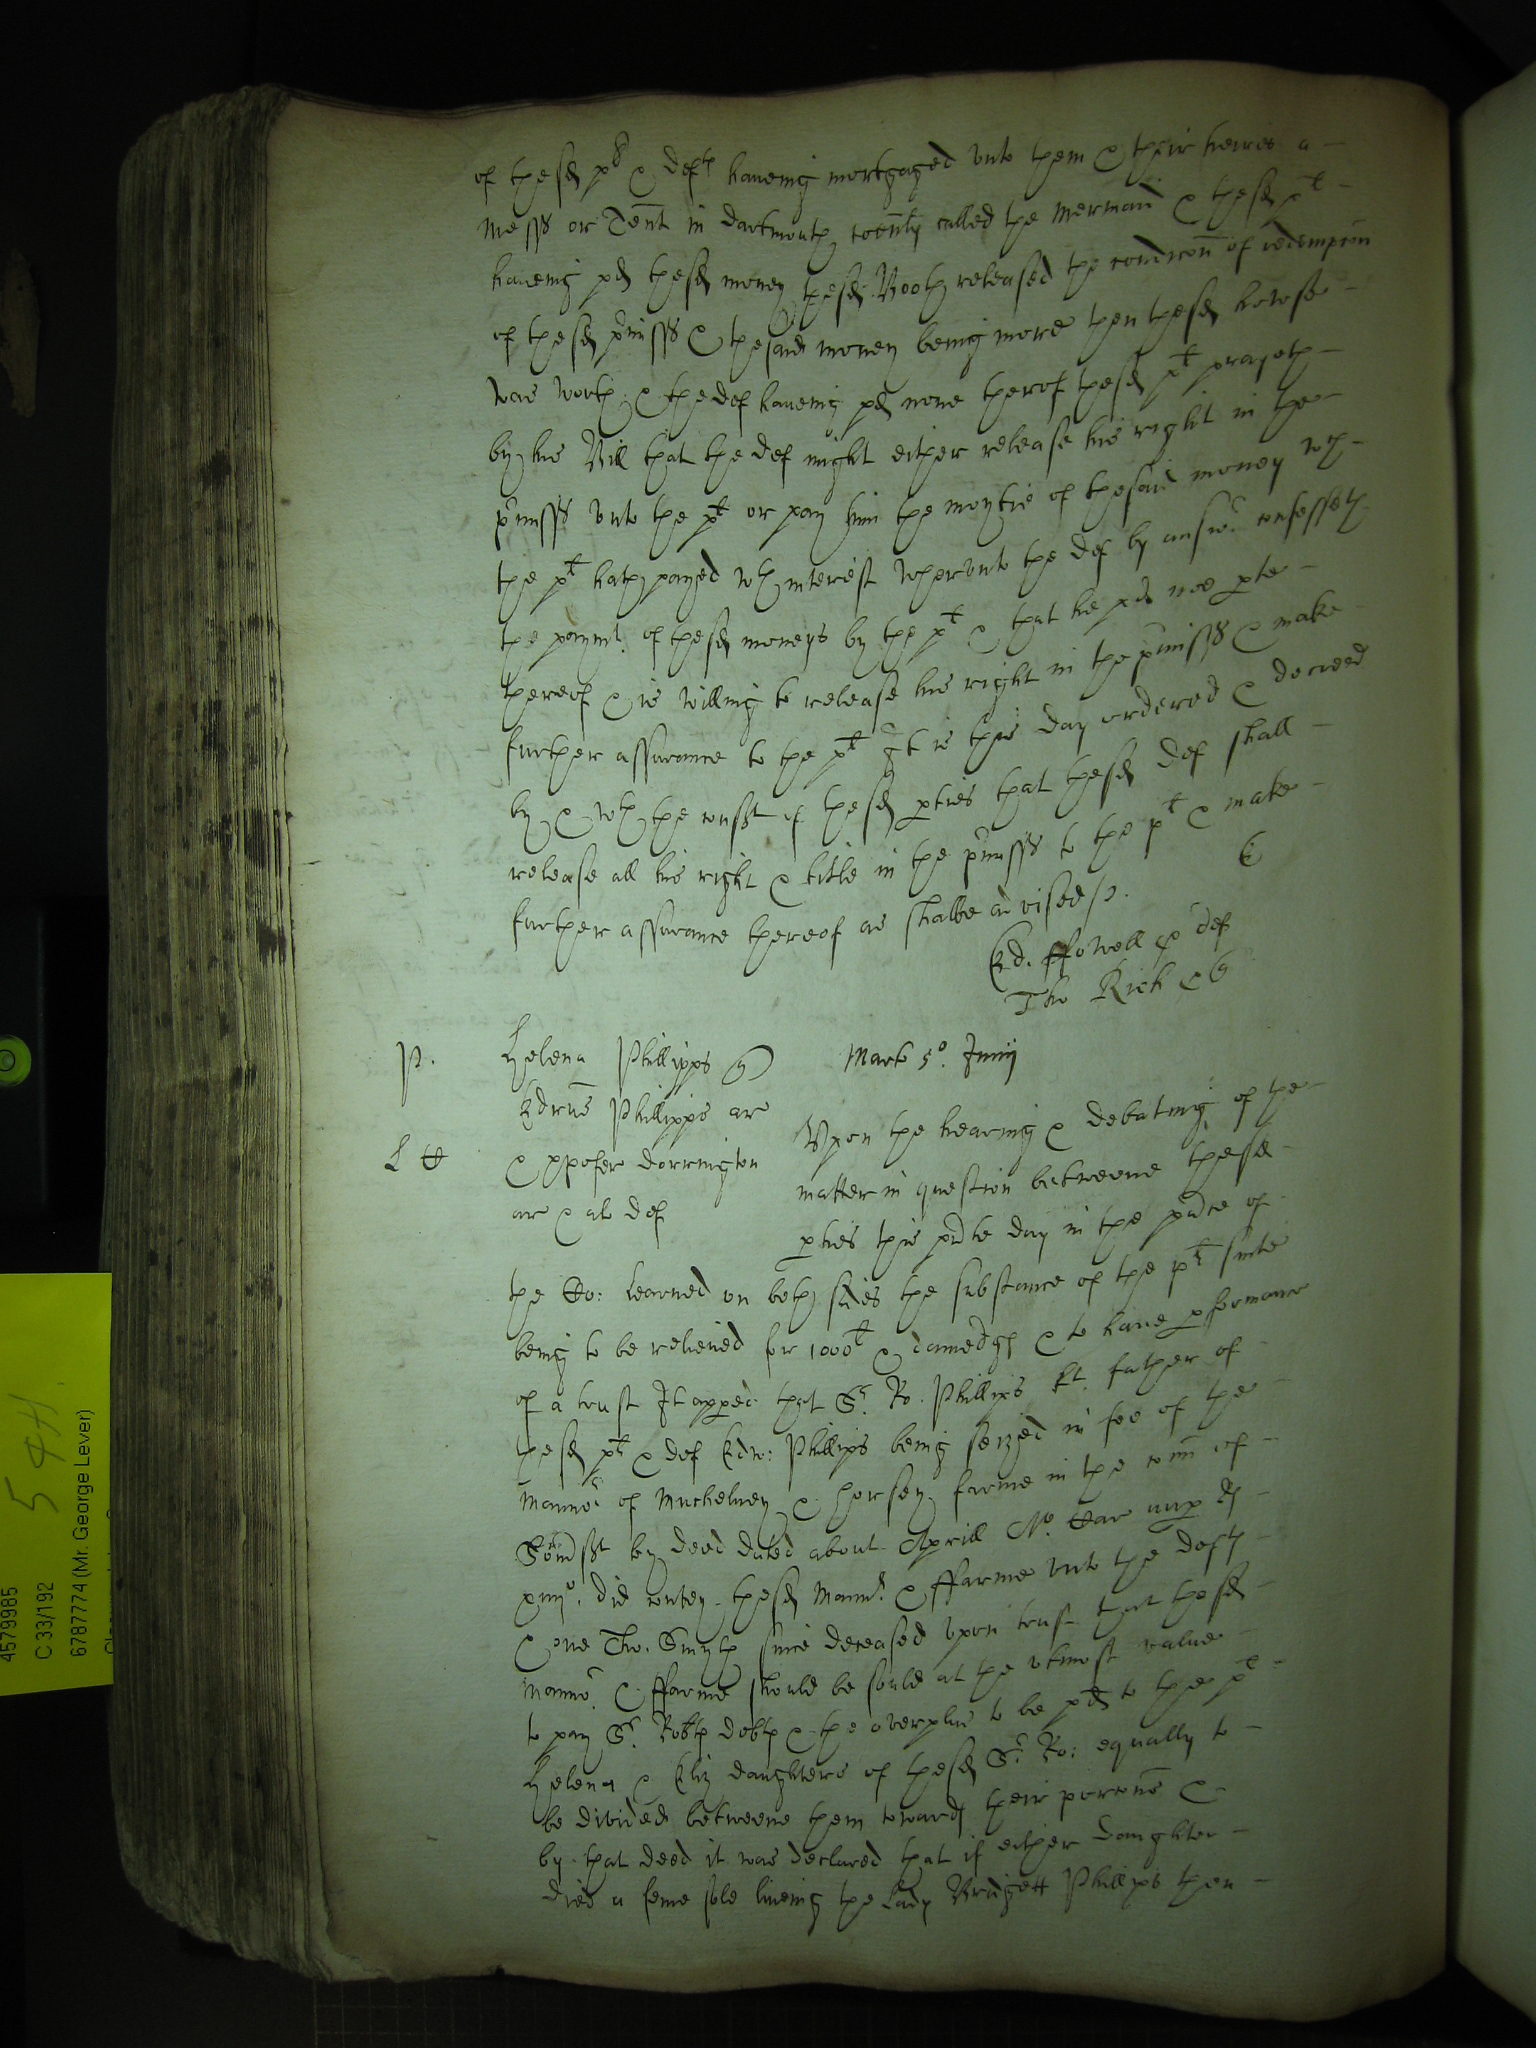 of thesd pl & deft haveing mortgaged unto them & their heires a
mess or Tent in dartmouth comly called the Mermaid & thesd pt
haveing pd thesd money thesd Booth released the condicon of redempcon
of thesd pmiss & thesaid money being more then thesd howse
was worth & the def haveing pd none therof thesd pt prayeth
by his Bill that the def might either release his right in the
pmiss unto the pt or pay him the moytie of thesaid money wch
the pt hath payed wth interest wherunto the def by answr confesseth
the paymt of thesd moneys by the pt & that he pd noe pte
thereof & is willing to release his right in the pmiss & make
further assurance to the pt It is this day ordered & decreed
by & wth the consst of thesd pties that thesd def shall
release all his right & title in the pmiss to the pt & make
further assurance thereof as shalbe advised
Ed. ffowell p def
Tho Rich
P.
Helena Phillipps
Edrus Phillipps ar
& dorrington
ar & al def
Mart 5o Junij
Upon the hearing & debating of the
matter in question betweene these
pties this pnte day in the pnce of
the Co: learned on both sides the substance of the pts suite
being to be relieved for 1000l & damedgs & to have pformance
of a trust It apped that Sr Ro. Phillips kt father of
thesd pt & def Edw: Phillips being seized in fee of the
Mannor of Muchelney & Horsey farme in the com of
Somdst by deed dated about Aprill
did convey thesd Mannr & ffarme unto the defts
& one Tho. Smyth since deceased upon trust that thesd
Mannor & ffarme should be sould at the utmost value
to pay Sr Robts debts & the overplus to be pd to the pt
Helena & Eliz daughters of thesd Sr Ro: equally to
be divided betweene them towards their porcons &
by that deed it was declared that if either daughter
died a feme sole liveing the Lady Bridgett Phillips then
4579985
C 33/192
6787774 (Mr. George Lever)